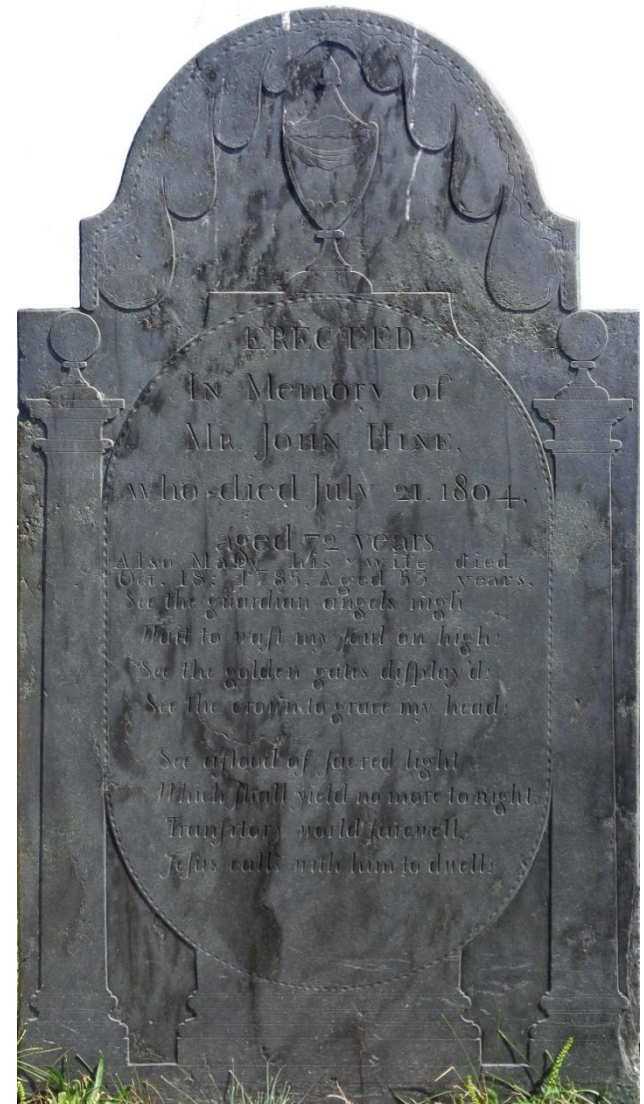 ERECTED
In Memory of
Mr. John Hine,
who died July 21. 1804,
aged 72 years.
Also Mary his wife died
Oct. 18: 1785. Aged 53 years.
See the guardian angels nigh
Wait to waft my ſoul on high:
See the golden gates diſplay'd:
See the crown to grace my head:
See a flood of ſacred light
Which ſhall yield no more to night:
Tranſitory world farewell,
Jeſus calls with him to dwell: